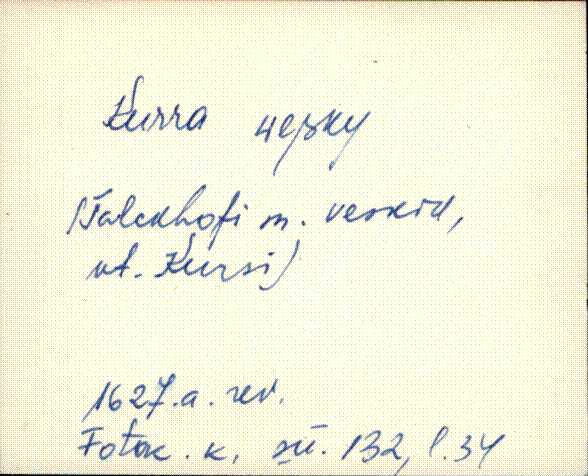 Kurra wesky
(Falckhofi m. veskid,
vt. Kursi)
1627.a. rev.
Fotok. k. sü. 132, l. 34